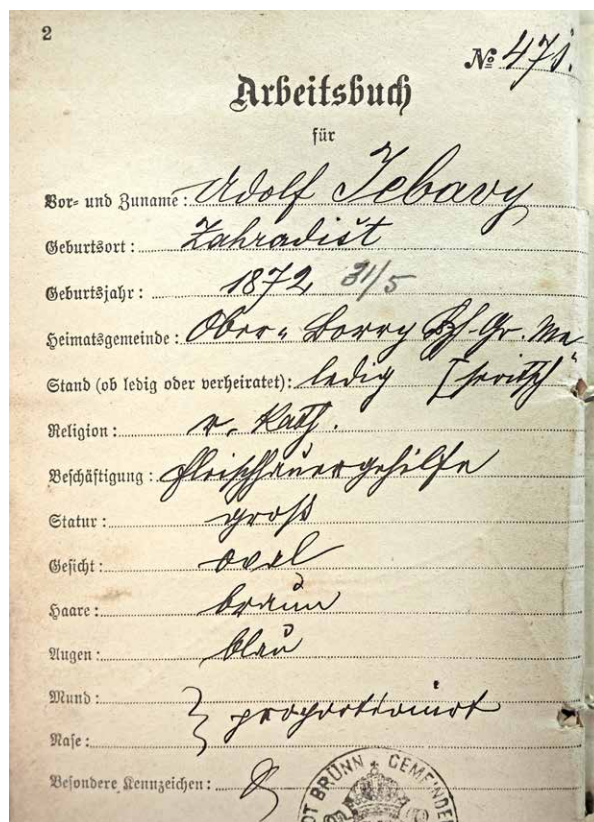 2
№ 471.
Arbeitsbuch
für
Vor- und Zuname: Adolf Tebavy
Geburtsort: Zahradišt
Geburtsjahr: 1872 31/5
Heimatsgemeinde: Ober-Borry Bz. Gr. Me
Stand (ob ledig oder verheiratet): ledig [seritsch"
Religion: r. kath.
Beschäftigung: Fleischhauergehilfe
Statur: groß
Gesicht: oval
Haare: braun
Augen: blau
Mund: } proportionirt
Nase:
Besondere Kennzeichen:
BRÜNN GEMEINDE